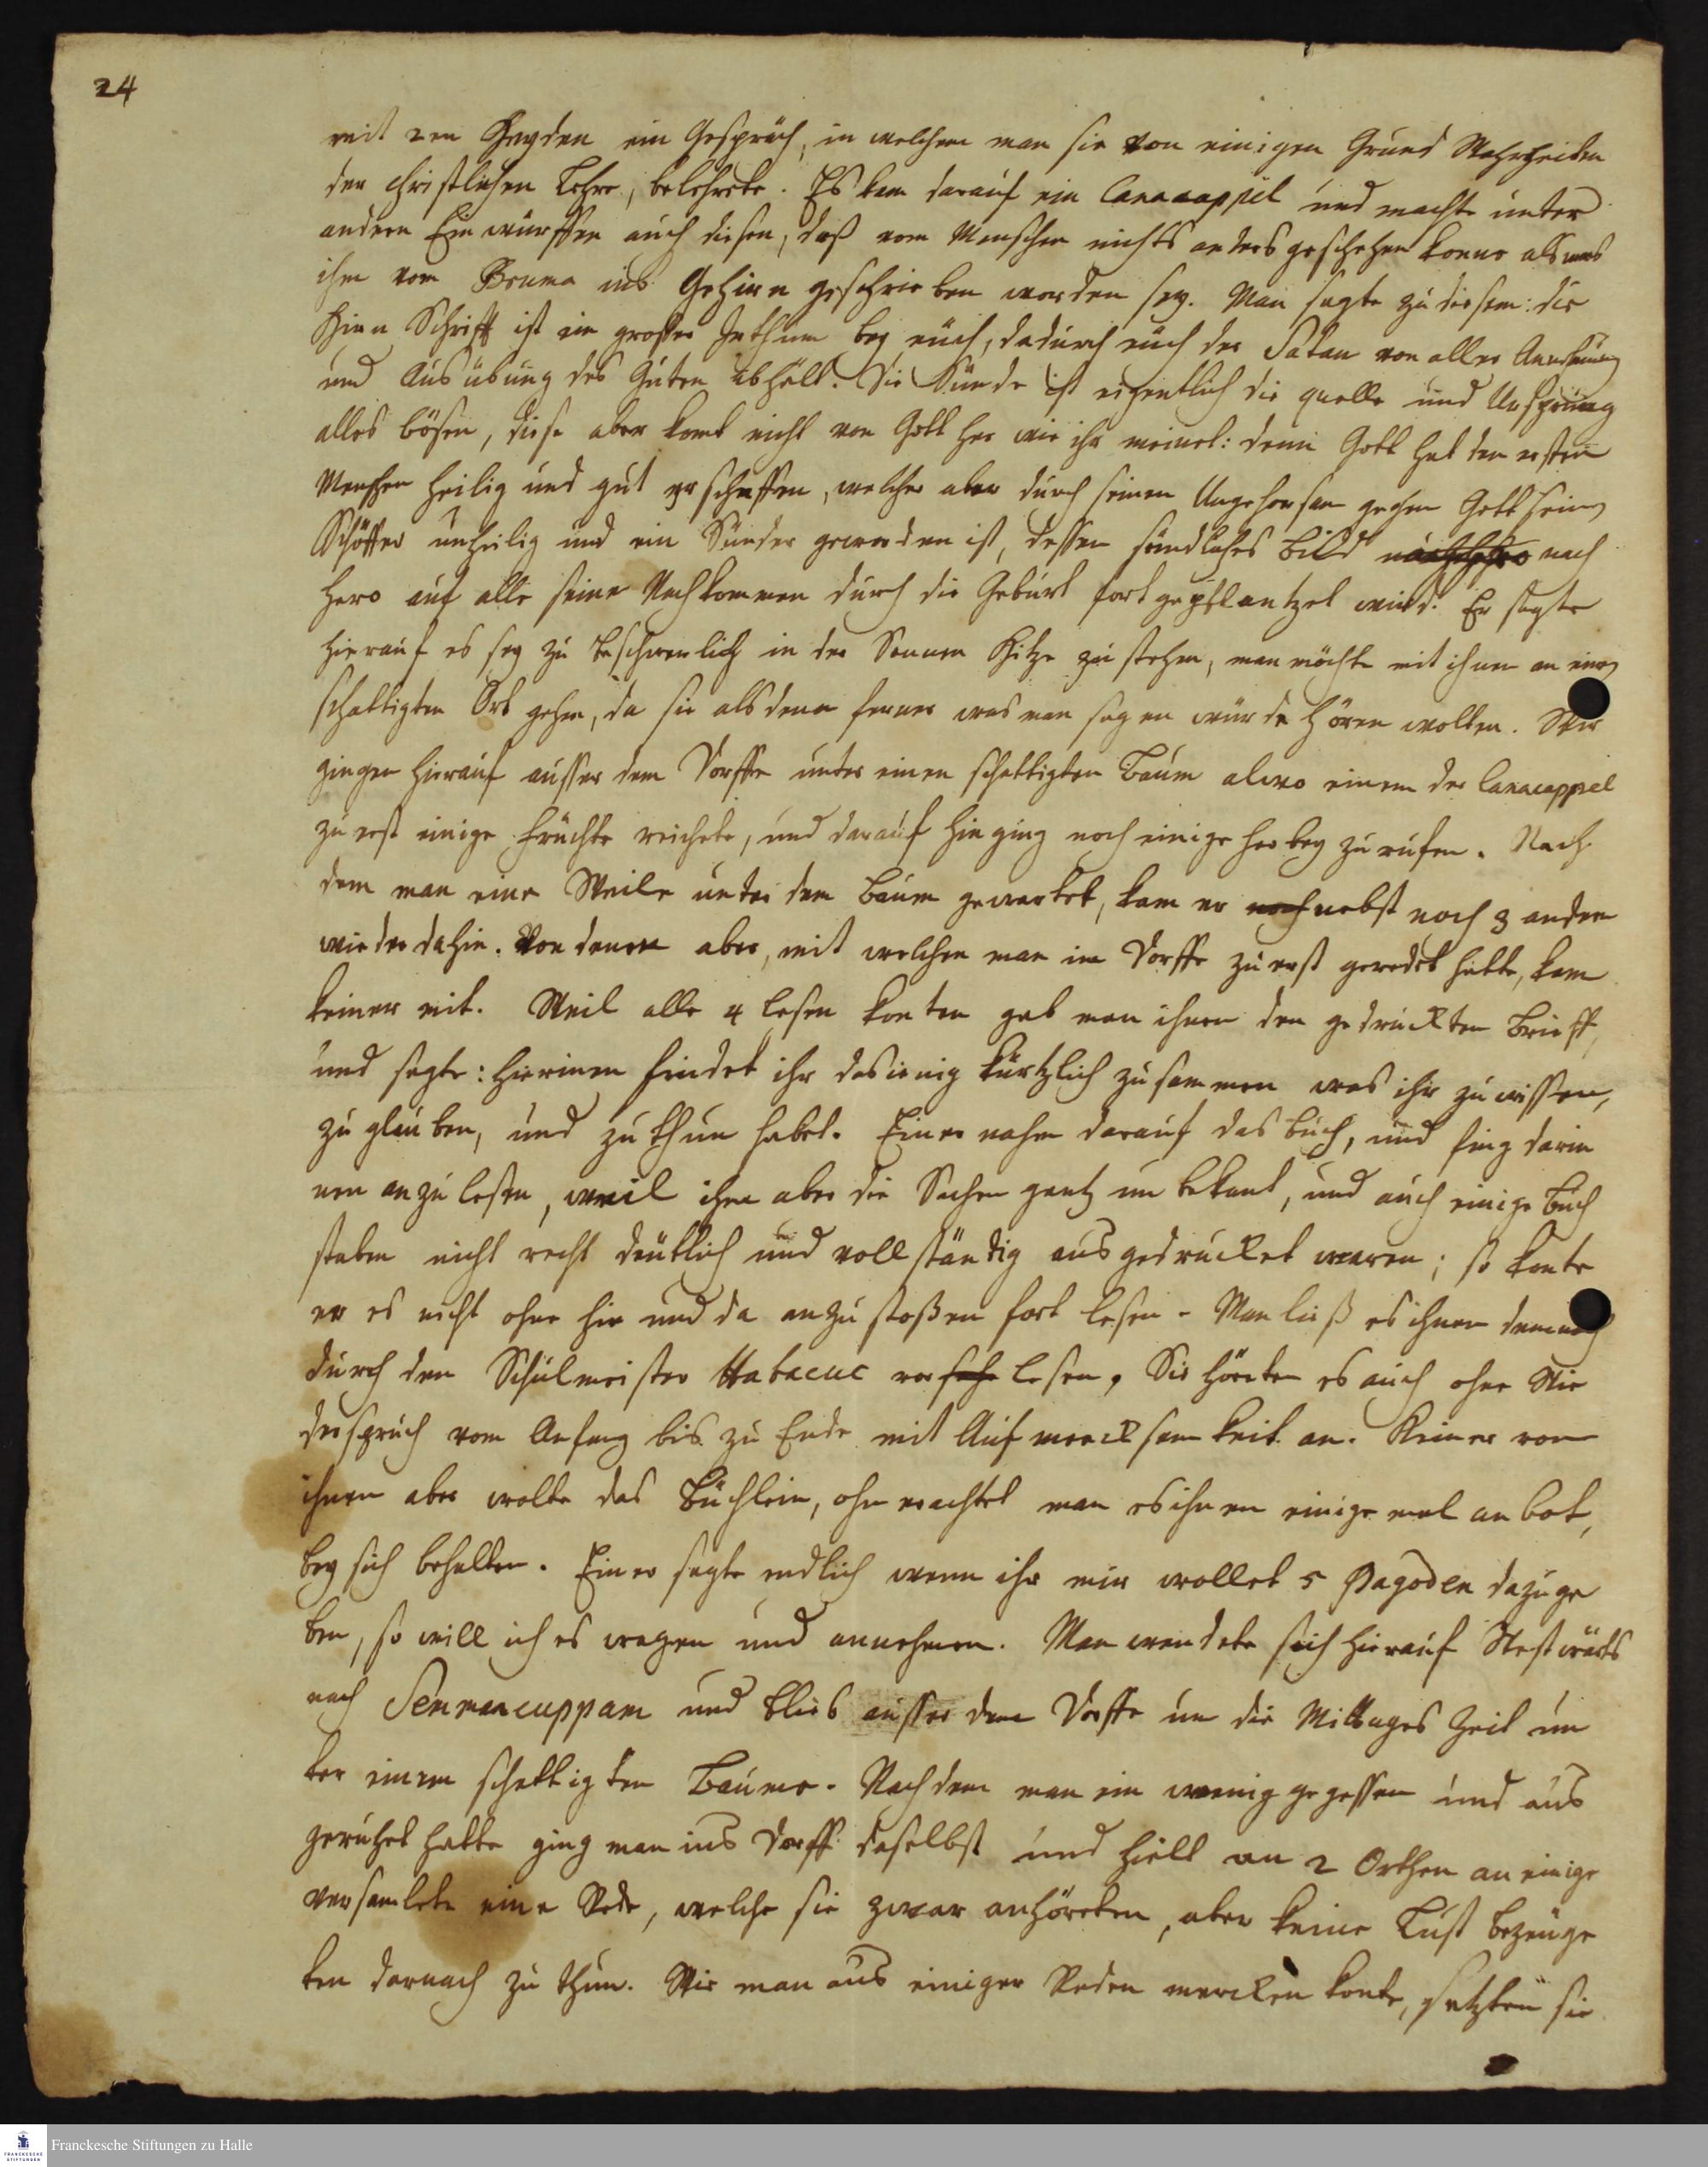 24
mit 2en Heyden ein Gespräch, in welchem man sie von einigen Grund Wahrheiten
der christlichen Lehre, belehrete. Es kam darauf ein Canacappel und machte unter
andern Einwürffen auch diesen, daß vom Menschen nichts anders geschehen könne als was
ihm vom Bruma ins Gehirn geschrieben worden sey. Man sagte zu diesem: die
Hirn Schrifft ist ein großer Irthum bey euch, dadurch euch der Satan von aller
und Ausübung des Guten abhält. Die Sünde ist eigentlich die quelle und Ursprung
alles bösen, diese aber komt nicht von Gott her wie ihr meinet: denn Gott hat den ersten
Menschen heilig und gut erschaffen, welcher aber durch seinen Ungehorsam gegen Gott seinen
Schöffer unheilig und ein Sünder geworden ist, dessen sündliches Bild nach
hero auf alle seine Nachkommen durch die Geburt fortgepflantzet wird. Er sagte
hierauf es sey zu beschwerlich in der Sonnen Hitze zu stehen, man möchte mit ihnen an einen
schattigten Ort gehen, da sie alsdenn ferner was man sagen würde hören wolten. Wir
gingen hierauf ausser dem Dorffe unter einen schattigten Baum alwo einem der Canacappel
zu erst einige Früchte reichete, und darauf hinging noch einige herbey zu rufen. Nach
dem man eine Weile unter dem Baum gewartet, kam er noch nebst noch 3 andern
wieder dahin. Von denen aber, mit welchen man im Dorffe zu erst geredet hatte, kam
keiner mit. Weil alle 4 lesen konten gab man ihnen den gedruckten Brieff,
und sagte: hierinnen findet ihr dasienig kürtzlich zusammen was ihr zu wissen,
zu glauben, und zu thun habet. Einer nahm darauf das Buch, und fing darin
nen an zu lesen, weil ihm aber die Sachen gantz unbekant, und auch einige Buch
staben nicht recht deutlich und vollständig ausgedrucket waren; so konte
er es nicht ohne hie und da anzustoßen fort lesen. Man ließ es ihnen demnach
durch den Schulmeister Habacuc vor lesen, Sie höreten es auch ohne Wie
derspruch vom Anfang bis zu Ende mit Aufmercksamkeit an. Keiner von
ihnen aber wolte das Büchlein, ohnerachtet man es ihnen einige mal anbot,
bey sich behalten. Einer sagte endlich wenn ihr mir wollet 5 Pagoden dazu ge
ben, so will ich es wagen und annehmen. Man wendete sich hierauf Westwärts
nach Senmancuppam und blieb ausser dem Dorffe um die Mittages Zeit un
ter einem schattigten Baume. Nachdem man ein wenig gegessen und aus
geruhet hatte ging man ins Dorff daselbst und hielt an 2 Orthen an einige
versamlete eine Rede, welche sie zwar anhöreten, aber keine Lust bezeuge
ten darnach zu thun. Wie man aus einiger Reden mercken konte, setzten sie
Franckesche Stiftungen zu Halle